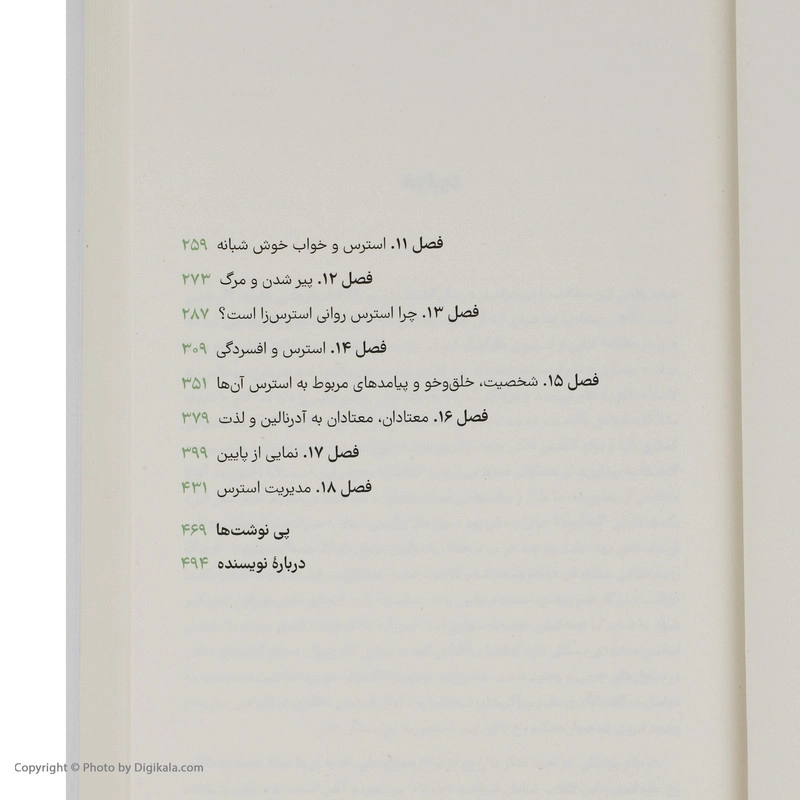 فصل ۱۱. استرس و خواب خوش شبانه ۲۵۹
فصل ۱۲. پیر شدن و مرگ ۲۷۳
فصل ۱۳. چرا استرس روانی استرس‌زا است؟ ۲۸۷
فصل ۱۴. استرس و افسردگی ۳۰۹
فصل ۱۵. شخصیت، خلق‌وخو و پیامدهای مربوط به استرس آن‌ها ۳۵۱
فصل ۱۶. معتادان، معتادان به آدرنالین و لذت ۳۷۹
فصل ۱۷. نمایی از پایین ۳۹۹
فصل ۱۸. مدیریت استرس ۴۳۱
پی نوشت‌ها ۴۶۹
دربارهٔ نویسنده ۴۹۴
Copyright © Photo by Digikala.com